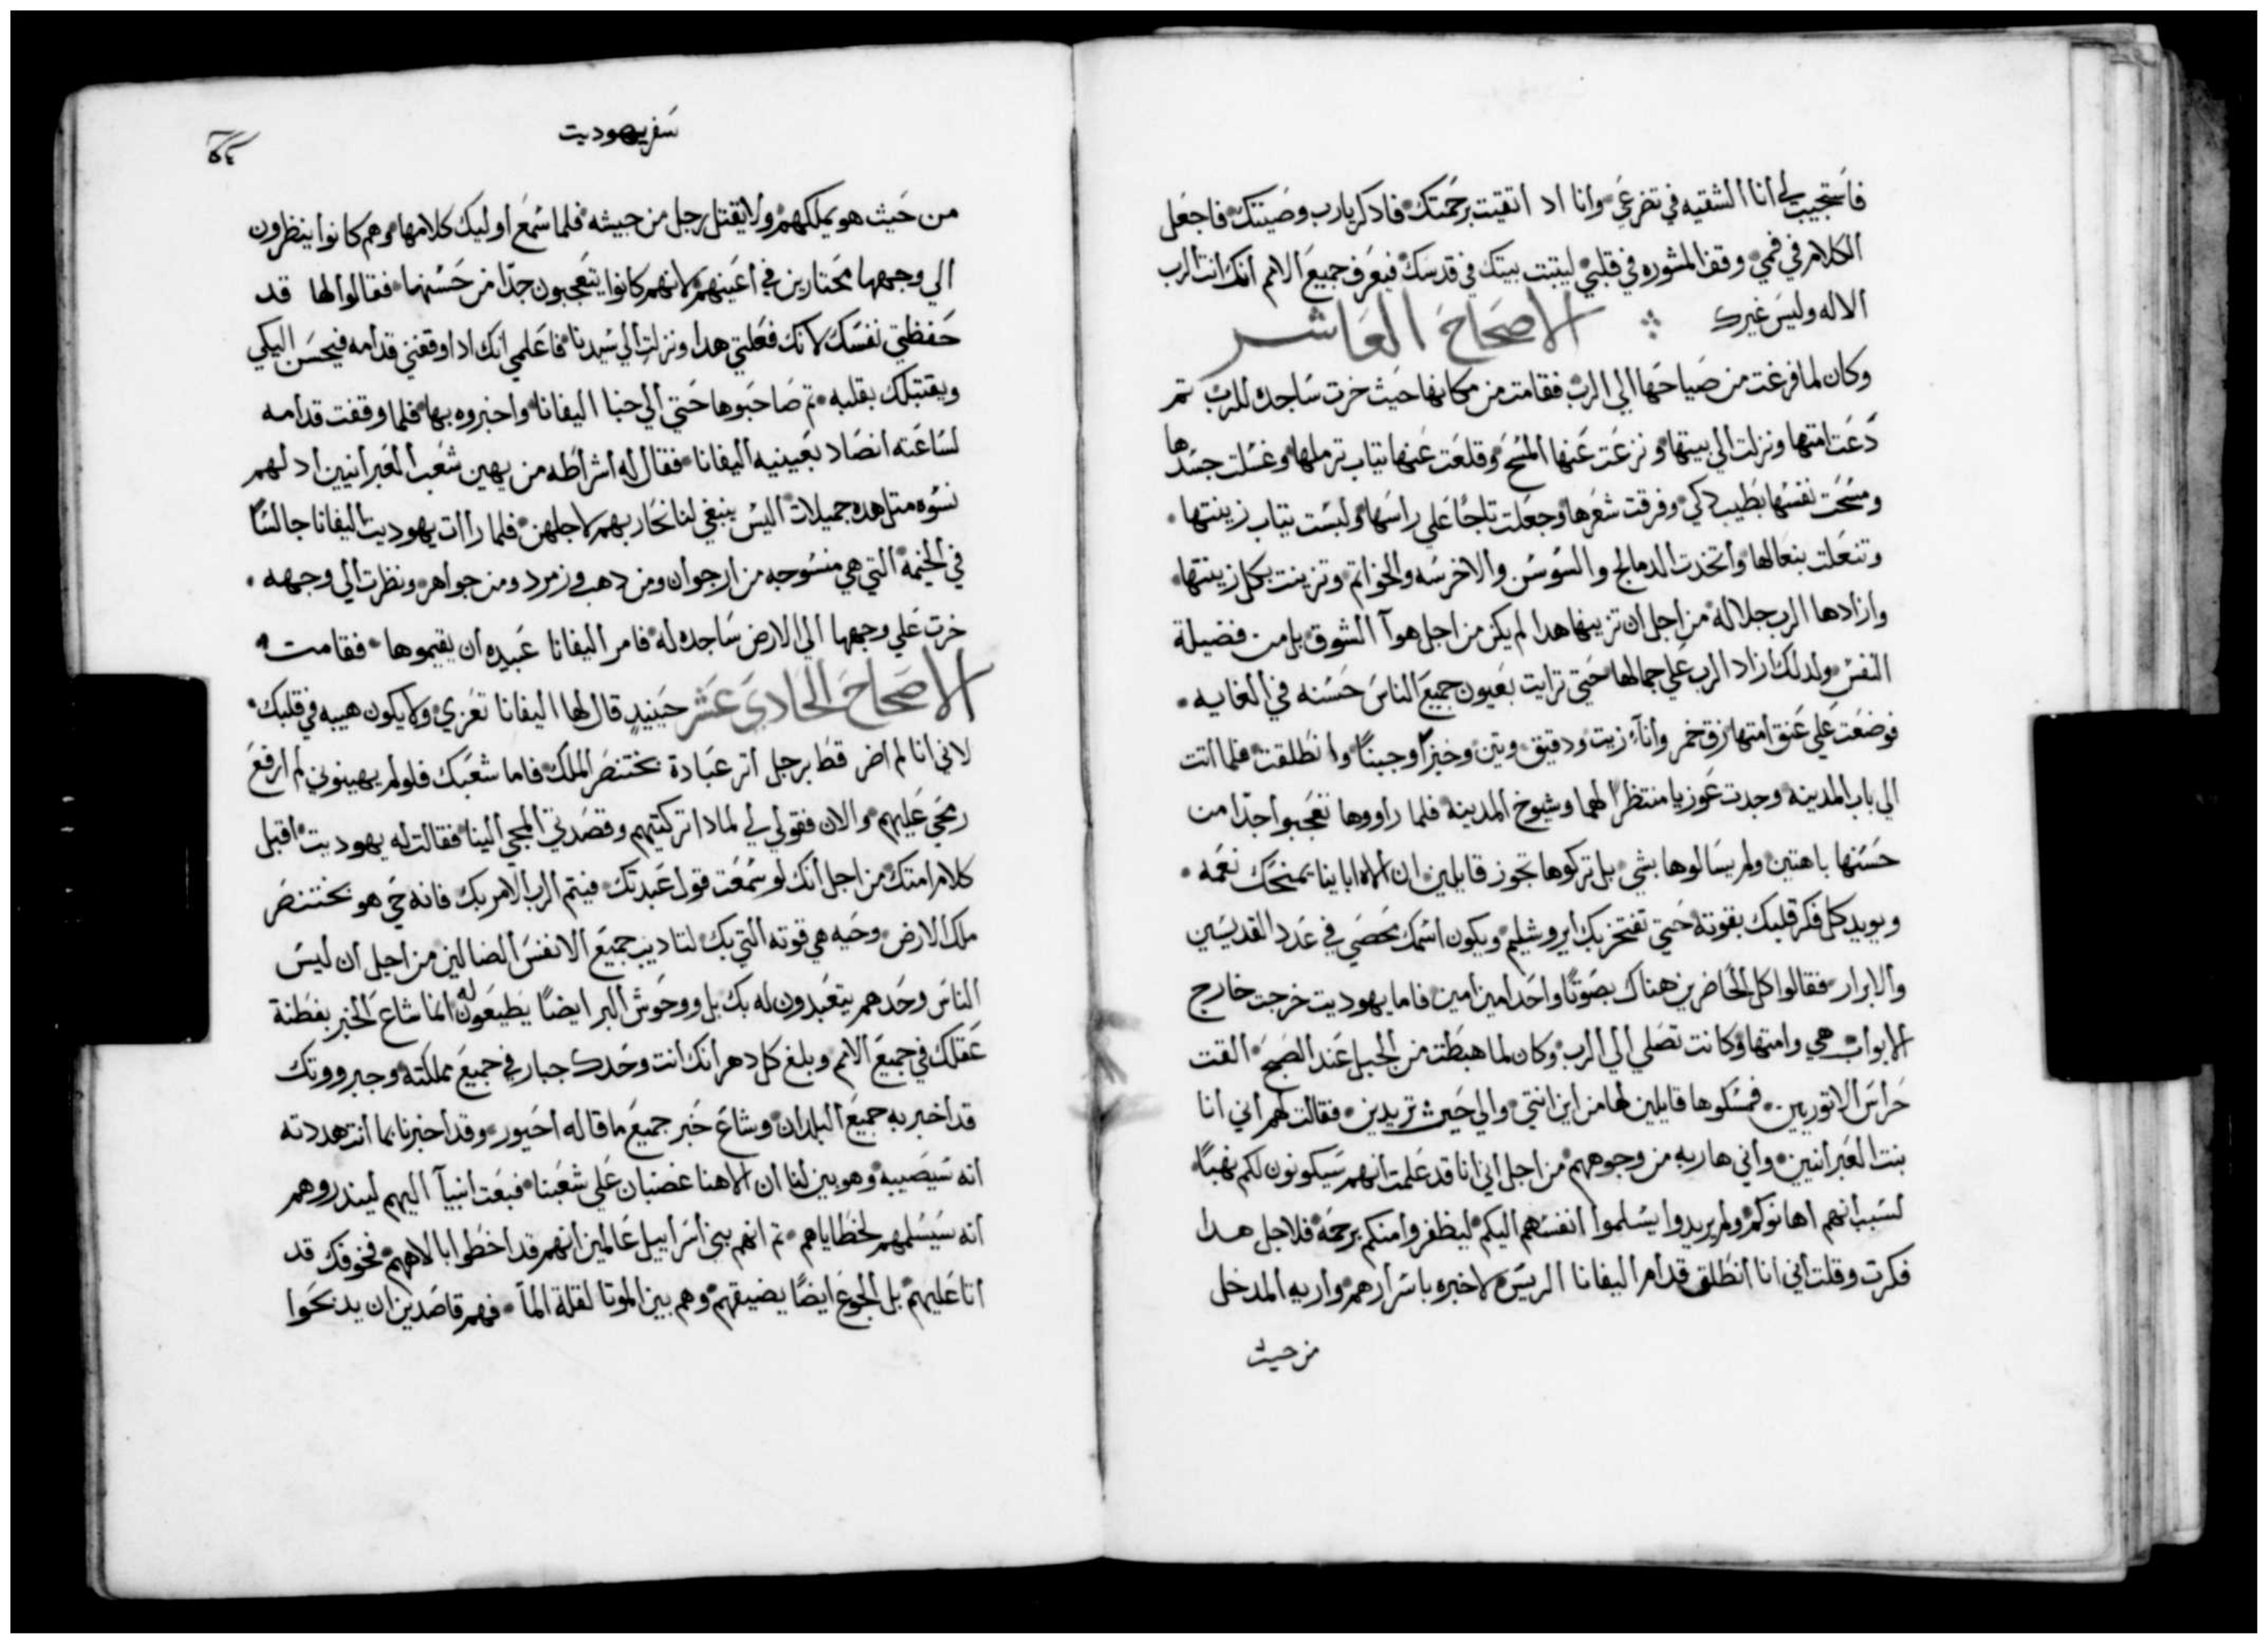 فاستجيب لي انا الشقيه في تضرعي وانا اد اتقيت برحمتك فادكر يارب وصيتك فاجعل
الكلام في فمي وقف المشوره في قلبي ليتبت بيتك في قدسك فيعرف جميع الامم انك انت الرب
الاله وليس غيرك الاصحاح العاشر
وكان لما فرغت من صياحها الي الرب فقامت من مكانها حيث خرت ساجده للرب تم
دعت امتها ونزلت الي بيتها ونزعت عنها المسح وقلعت عنها تياب ترملها وغسلت جسدها
ومسحت نفسها بطيب دكي وفرقت شعرها وجعلت تاجا علي راسها ولبست تياب زينتها
وتنعلت بنعالها واتخدت الدمالج والسوسن والاخرسه والخواتم وتزينت بكل زينتها
وازادها الرب جلاله من اجل ان تزيينها هدا لم يكن من اجل هوآ الشوق بل من فضيلة
النفس ولدلك ازاد الرب علي جمالها حتي ترايت بعيون جميع الناس حسنه في الغايه
فوضعت علي عنق امتها زق خمر واناء زيت ودقيق وتين وخبزا وجبنا وانطلقت فلما اتت
الي باب المدينه وجدت عوزيا منتظرا لهما وشيوخ المدينه فلما راووها تعجبوا جدا من
حسنها باهتين ولم يسالوها بشي بل تركوها تجوز قايلين ان الاه ابايا يمنحك نعمه
ويويد كل فكر قلبك بقوته حتي تفتخر بك ايروشليم ويكون اسمك محصي في عدد القديسين
والابرار فقالوا كل الحاضرين هناك بصوتا واحد امين امين فاما يهوديت خرجت خارج
الابواب هي وامتها وكانت تصلي الي الرب وكان لما هبطت من الجبل عند الصبح القت
حراس الاتوريين فمسكوها قايلين لها من اين انتي والي حيث تريدين فقالت لهم اني انا
بنت العبرانيين واني هاربه من وجوههم من اجل اني انا قد علمت انهم سيكونون لكم نهبا
لسبب انهم اهانوكم ولم يريدوا يسلموا انفسهم اليكم ليظفروا منكم برحمة فلاجل هدا
فكرت وقلت اني انا انطلق قدام اليفانا الريس لاخبره باسرارهم واريه المدخل
من حيث
سفر يهوديت
من حيث هو يملكهم ولا يقتل رجل من جيشه فلما سمع اوليك كلامها وهم كانوا ينظرون
الي وجهها محتارين في اعينهم لانهم كانوا يتعجبون جدا من حسنها فقالوا لها قد
حفظتي نفسك لانك فعلتي هدا ونزلت الي سيدنا فاعلمي انك ادا وقفتي قدامه فيحسن اليكي
ويقتبلك بقلبه تم صاحبوها حتي الي خبا اليفانا واخبروه بها فلما وقفت قدامه
لساعته انصاد بعينيه اليفانا فقال له اشراطه من يهين شعب العبرانيين اد لهم
نسوه متل هده جميلات اليس ينبغي لنا نحاربهم لاجلهن فلما راات يهوديت اليفانا جالسا
في الخيمة التي هي منسوجه من ارجوان ومن دهب وزمرد ومن جواهر ونظرت الي وجهه
خرت علي وجهها الي الارض ساجده له فامر اليفانا عبيده ان يقيموها فقامت
الاصحاح الحادي عشر حينيد قال لها اليفانا تعزي ولا يكون هيبه في قلبك
لاني انا لم اضر قط برجل اتر عبادة بختنصر الملك فاما شعبك فلو لم يهينوني لم ارفع
رمحي عليهم والان فقولي لي لمادا تركتيهم وقصدتي المجي الينا فقالت له يهوديت اقبل
كلام امتك من اجل انك لو سمعت قول عبدتك فيتم الرب الامر بك فانه حي هو بختنصر
ملك الارض وحيه هي قوته التي بك لتاديب جميع الانفس الضالين من اجل ان ليس
الناس وحدهم يتعبدون له بك بل ووحوش البر ايضا يطيعون له انما شاع الخبر بفطنة
عقلك في جميع الامم وبلغ كل دهر انك انت وحدك جبار في جميع مملكته وجبرووتك
قد اخبر به جميع البلدان وشاع خبر جميع ما قاله احيور وقد اخبرنا بما انت هددته
انه سيصيبه وهو بين لنا ان الاهنا غضبان علي شعبنا فبعت انبيآ اليهم ليندروهم
انه سيسلمهم لخطاياهم تم انهم بني اسراييل عالمين انهم قد اخطوا بالاههم فخوفك قد
اتا عليهم بل الجوع ايضا يضيقهم وهم بين الموتا لقلة المآ فهم قاصدين ان يدبحوا